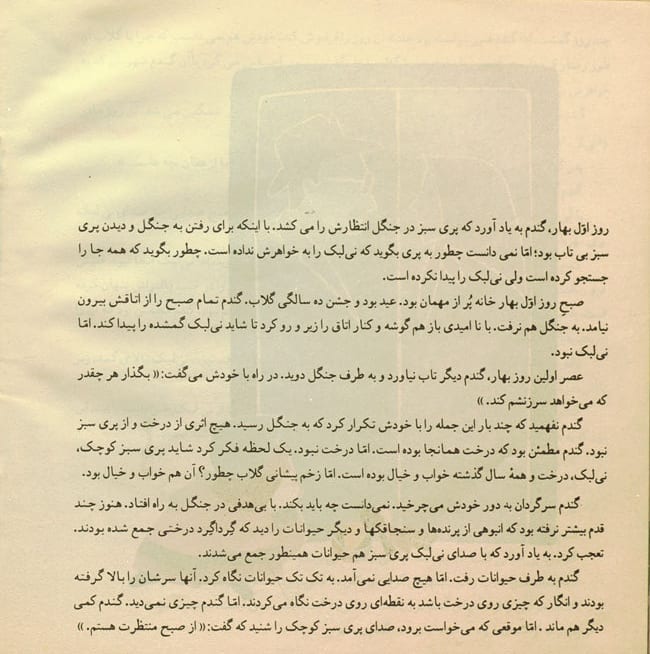 روز اوّل بهار، گندم به یاد آورد که پری سبز در جنگل انتظارش را می کشد. با اینکه برای رفتن به جنگل و دیدن پری
سبز بی تاب بود؛ امّا نمی دانست چطور به پری بگوید که نی‌لبک را به خواهرش نداده است. چطور بگوید که همه جا را
جستجو کرده است ولی نی‌لبک را پیدا نکرده است.
صبحِ روز اوّل بهار خانه پُر از مهمان بود. عید بود و جشن ده سالگی گلاب. گندم تمام صبح را از اتاقش بیرون
نیامد. به جنگل هم نرفت. با نا امیدی باز هم گوشه و کنار اتاق را زیر و رو کرد تا شاید نی‌لبک گمشده را پیدا کند. امّا
نی‌لبک نبود.
عصر اولین روز بهار، گندم دیگر تاب نیاورد و به طرف جنگل دوید. در راه با خودش می‌گفت:« بگذار هر چقدر
که می‌خواهد سرزنشم کند. »
گندم نفهمید که چند بار این جمله را با خودش تکرار کرد که به جنگل رسید. هیچ اثری از درخت و از پری سبز
نبود. گندم مطمئن بود که درخت همانجا بوده است. امّا درخت نبود. یک لحظه فکر کرد شاید پری سبز کوچک،
نی‌لبک، درخت و همهٔ سال گذشته خواب و خیال بوده است. امّا زخم پیشانی گلاب چطور؟ آن هم خواب و خیال بود.
گندم سرگردان به دور خودش می‌چرخید. نمی‌دانست چه باید بکند. با بی‌هدفی در جنگل به راه افتاد. هنوز چند
قدم بیشتر نرفته بود که انبوهی از پرنده‌ها و سنجاقکها و دیگر حیوانات را دید که گِرداگِرد درختی جمع شده بودند.
تعجب کرد. به یاد آورد که با صدای نی‌لبک پری سبز هم حیوانات همینطور جمع می‌شدند.
گندم به طرف حیوانات رفت. امّا هیچ صدایی نمی‌آمد. به تک تک حیوانات نگاه کرد. آنها سرشان را بالا گرفته
بودند و انگار که چیزی روی درخت باشد به نقطه‌ای روی درخت نگاه می‌کردند. امّا گندم چیزی نمی‌دید. گندم کمی
دیگر هم ماند . امّا موقعی که می‌خواست برود، صدای پری سبز کوچک را شنید که گفت:« از صبح منتظرت هستم. »